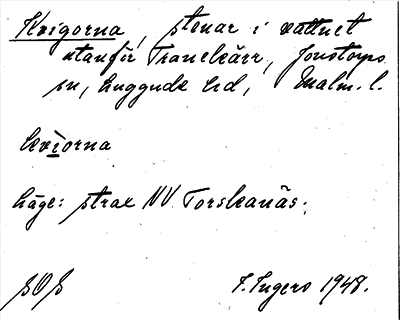 Kvigorna, stenar i vattnet
utanför Tranekärr, Jonstorps
sn, Luggude hd, Malm. l.
kvìorna
Läge: strax NV Torskanäs.
F. Ingers 1948.